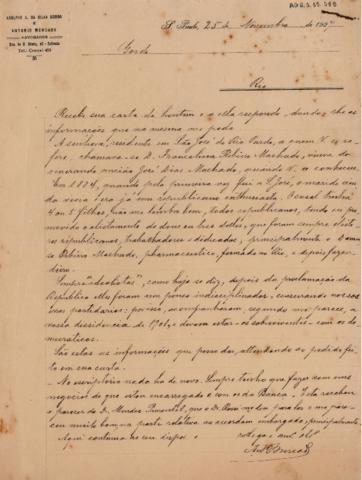 ADOLPHO A. DA SILVA GORDO
E
ANTONIO MERCADO
ADVOGADOS
S. Paulo, 25 de Novembro de 19
Gordo
Rio
Recebi sua carta de hontem e a ella respondo, dando-lhe as
informações que na mesma me pede.
A senhora, residente em São José do Rio Pardo, a quem V. se re-
fere, chamava-se D. Francelina Ribeiro Machado, viuva do
José Dias Machado, quando V. a conheceu.
Em 1884, quando pela primeira vez fui a S. José, o marido
era já um republicano enthusiasta. O casal tinha
4 ou 5 filhos, mas me lembra bem, todos republicanos, tendo eu pro-
movido o alistamento de dous ou tres delles, que foram sempre eleito-
res republicanos, trabalhadores e dedicados, principalmente o
Ribeiro Machado, pharmaceutico, formado no Rio, e depois fazen-
deiro.
Sempre "idealistas", como hoje se diz, depois da proclamação da
Republica elles foram um pouco indisciplinados, censurando nossos
partidarios: por isso, acompanharam, segundo me parece, a
nossa dissidencia de 1901, e devem estar - os sobreviventes - com os de-
mocraticos.
São estas as informações que posso dar, attendendo ao pedido fei-
to em sua carta.
- No escriptorio nada ha de novo. Sempre tenho que fazer com uns
negocios de que estou encarregado e com os do Banco. Esta
parecer do Dr. Mendes Pimentel, que o Dr. mandou para ler e me pare-
ceu muito bom na parte relativa ao accordam embargado, principalmente.
Aqui continua ao seu dispor o
collega e amº obrº